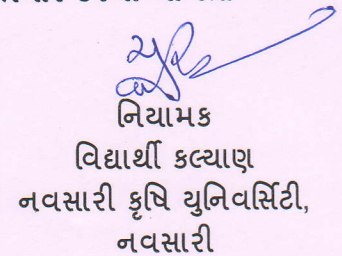 નિયામક
વિદ્યાર્થી કલ્યાણ
નવસારી કૃષિ યુનિવર્સિટી,
નવસારી